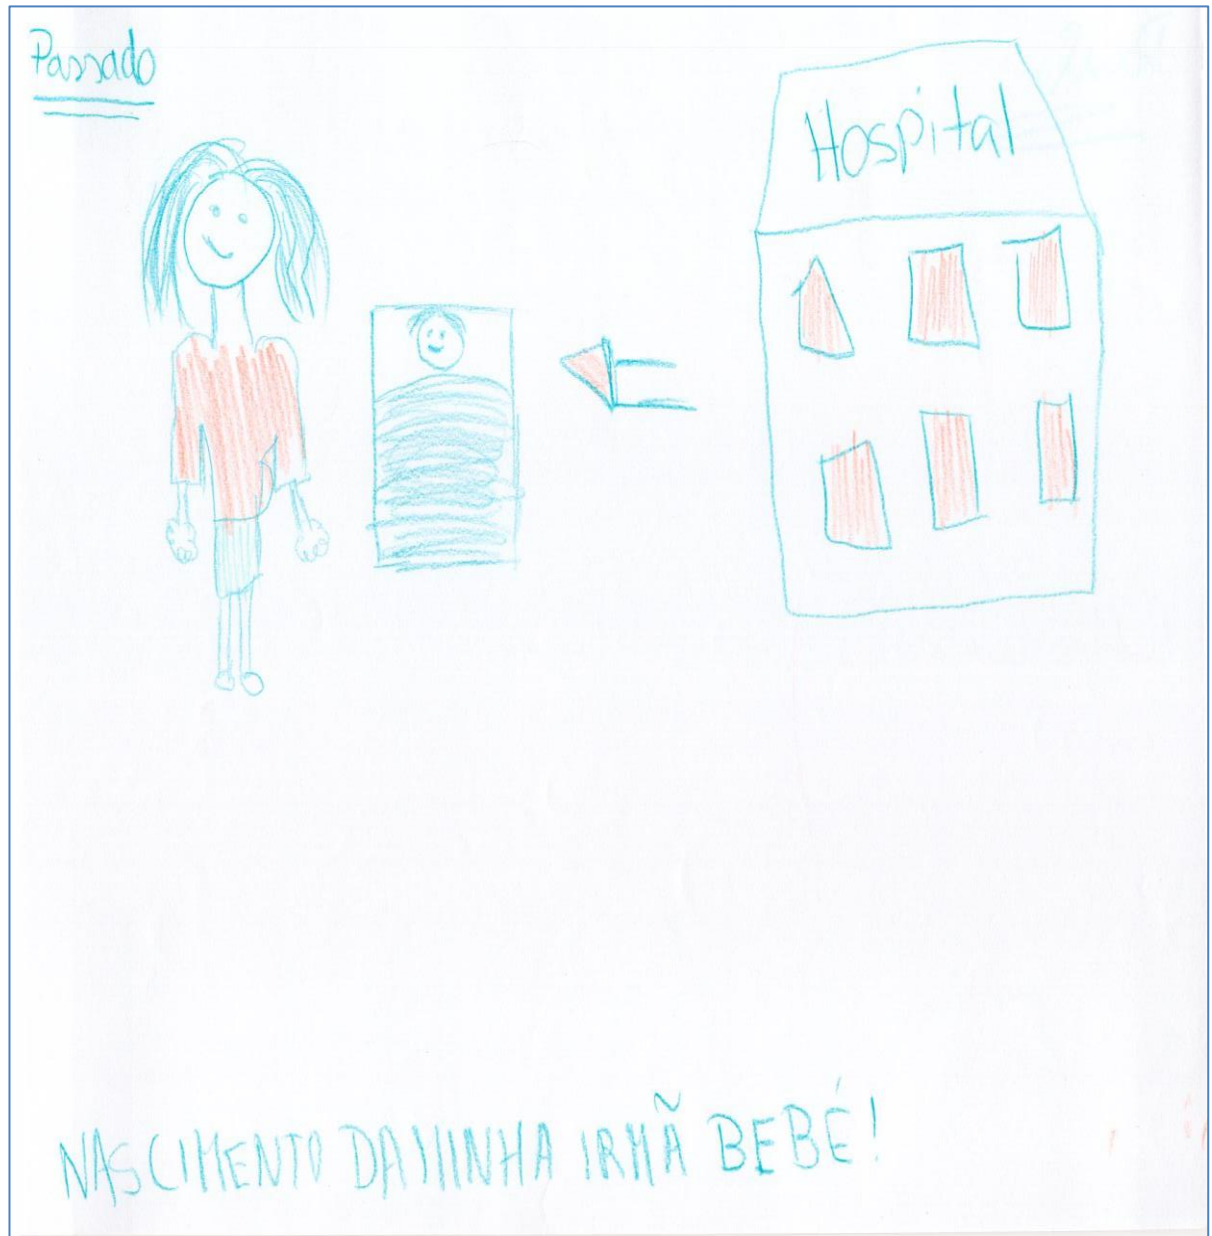 Passado
Hospital
NASCIMENTO DA MINHA IRMÃ BEBÉ!